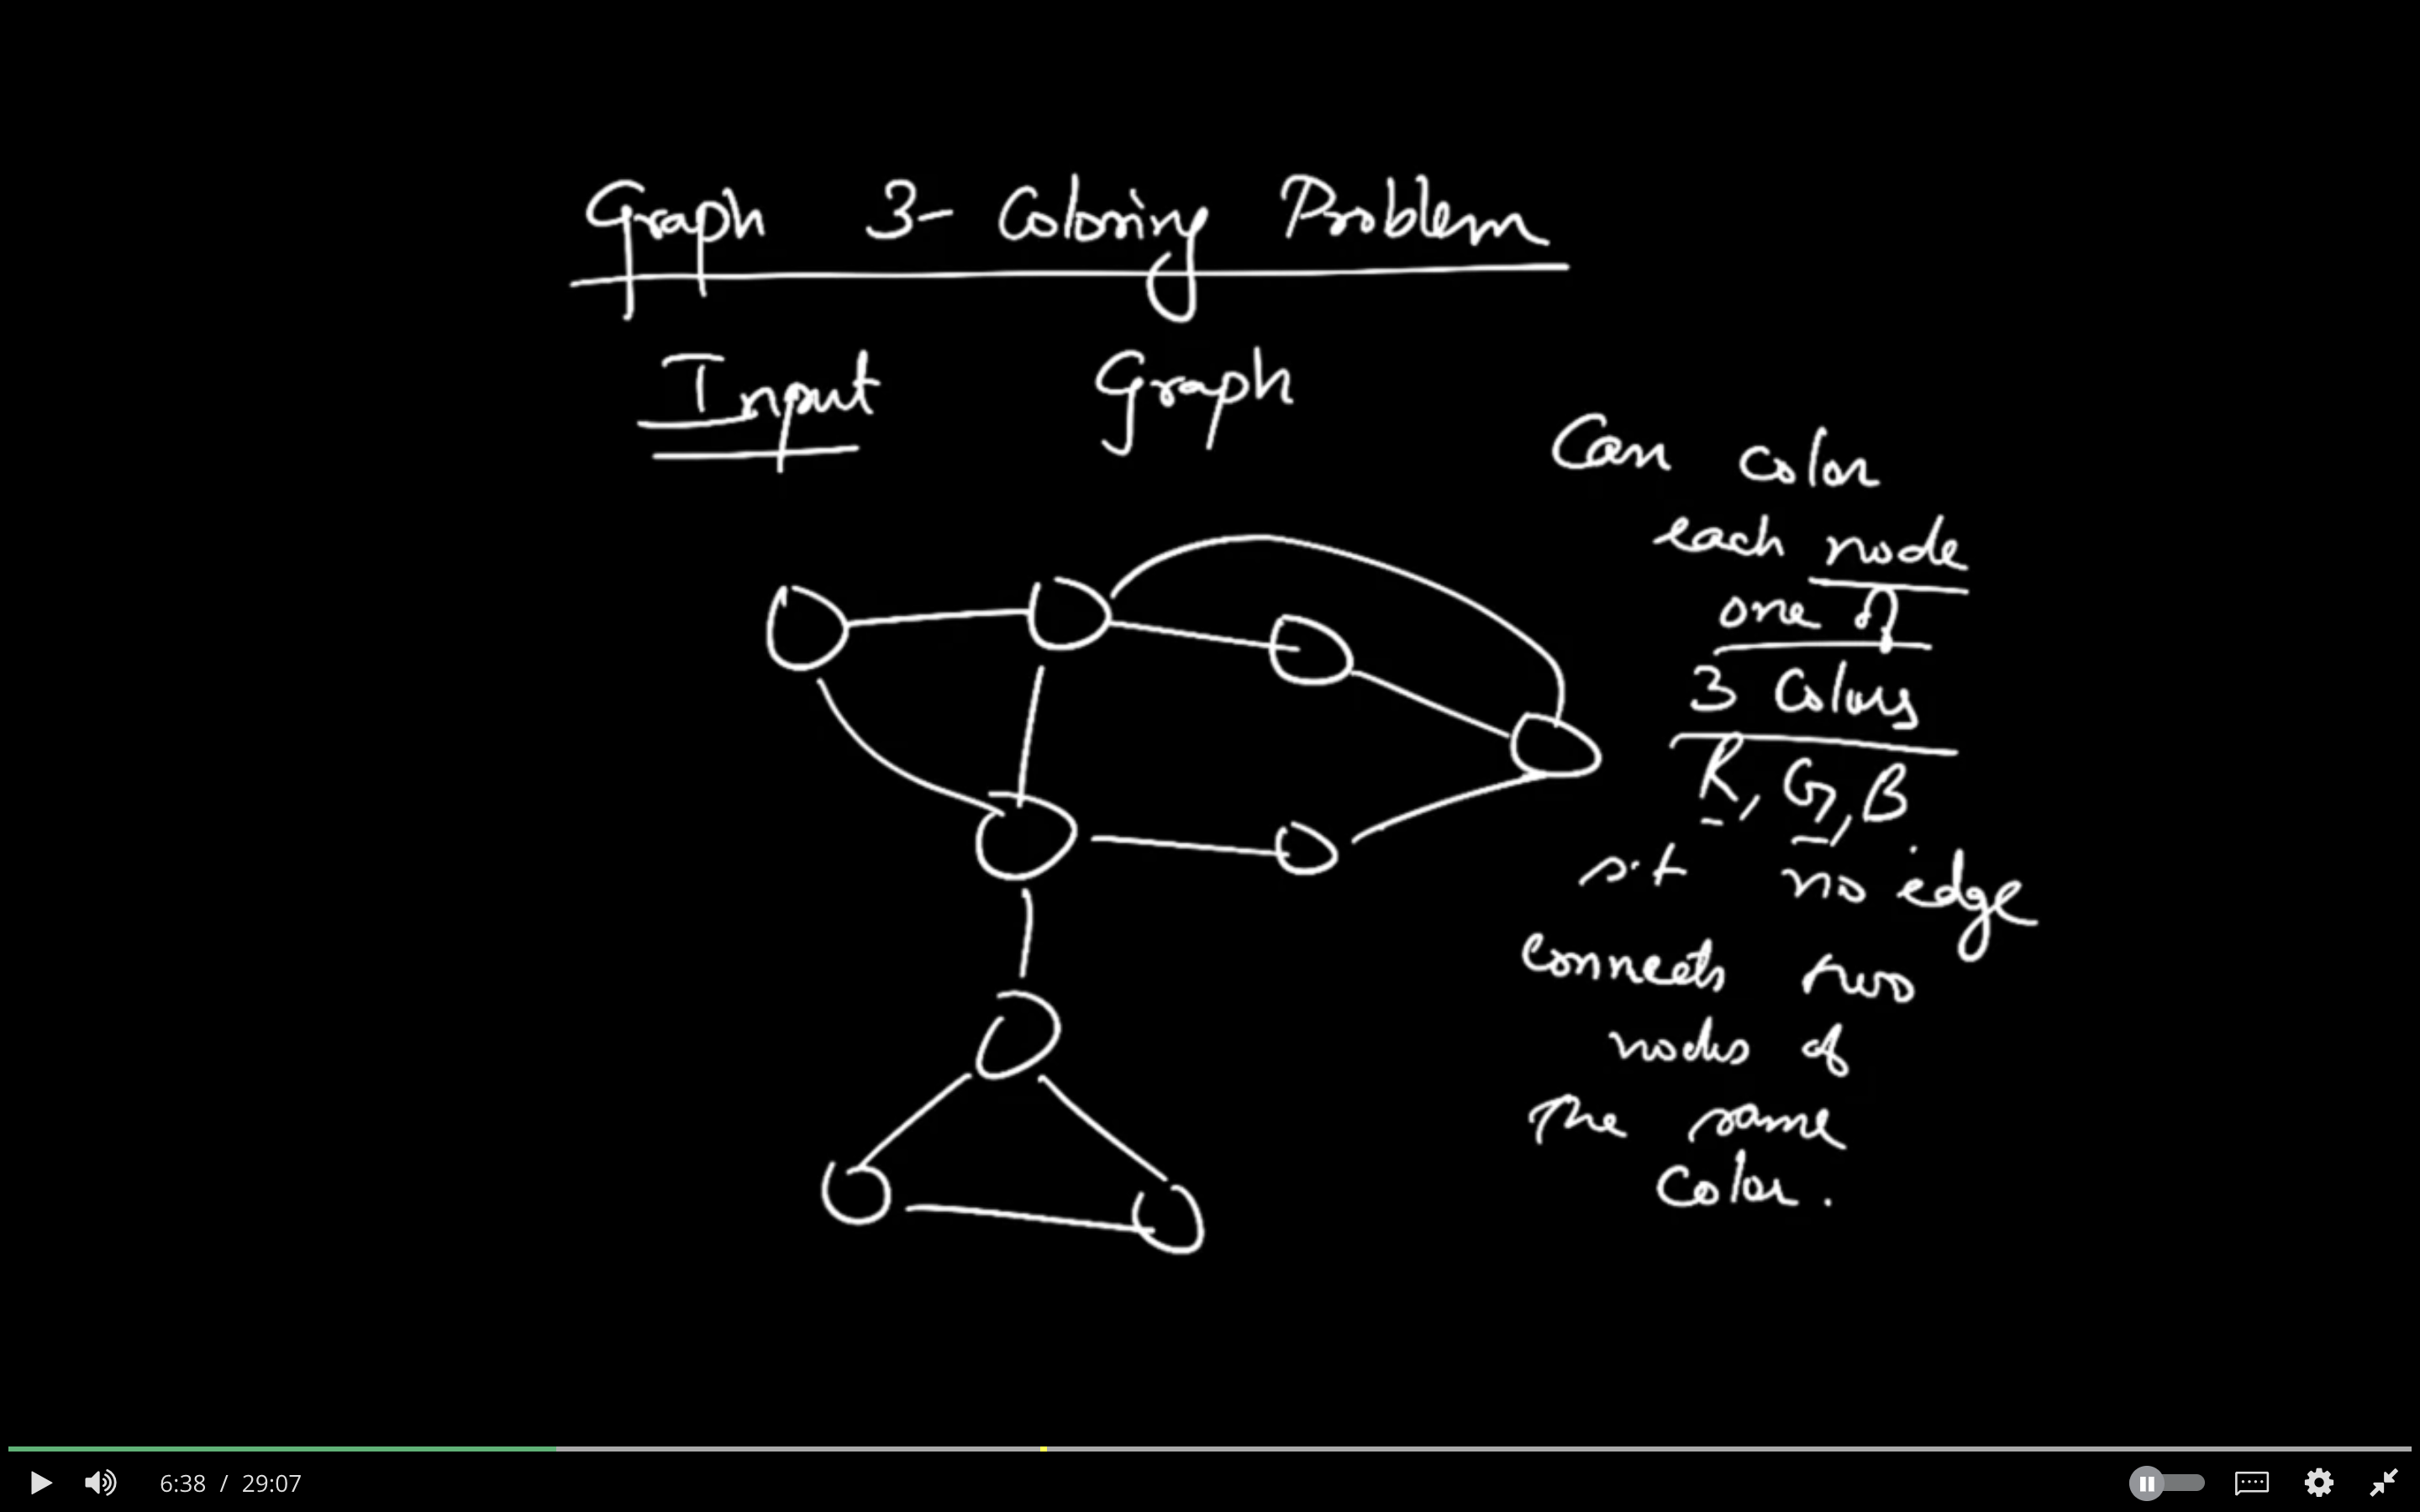 Graph 3-Coloring Problem
Input Graph
Can color
each node
one of
3 Colors
R, G, B
s.t no edge
connects two
nodes of
the same
Color.
6:38 / 29:07